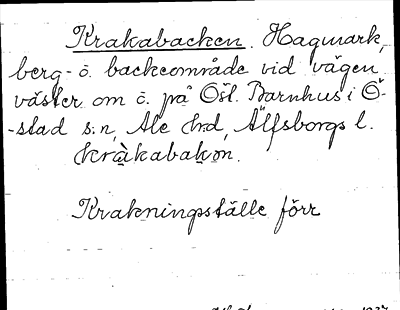 Krakabacken. Hagmark,
berg- o. backeområde vid vägen
väster om o. på Östl. Barnhus i Ö-
-stad s:n, Ale hrd, Älfsborgs l.
kràkabakon.
Krakningställe förr